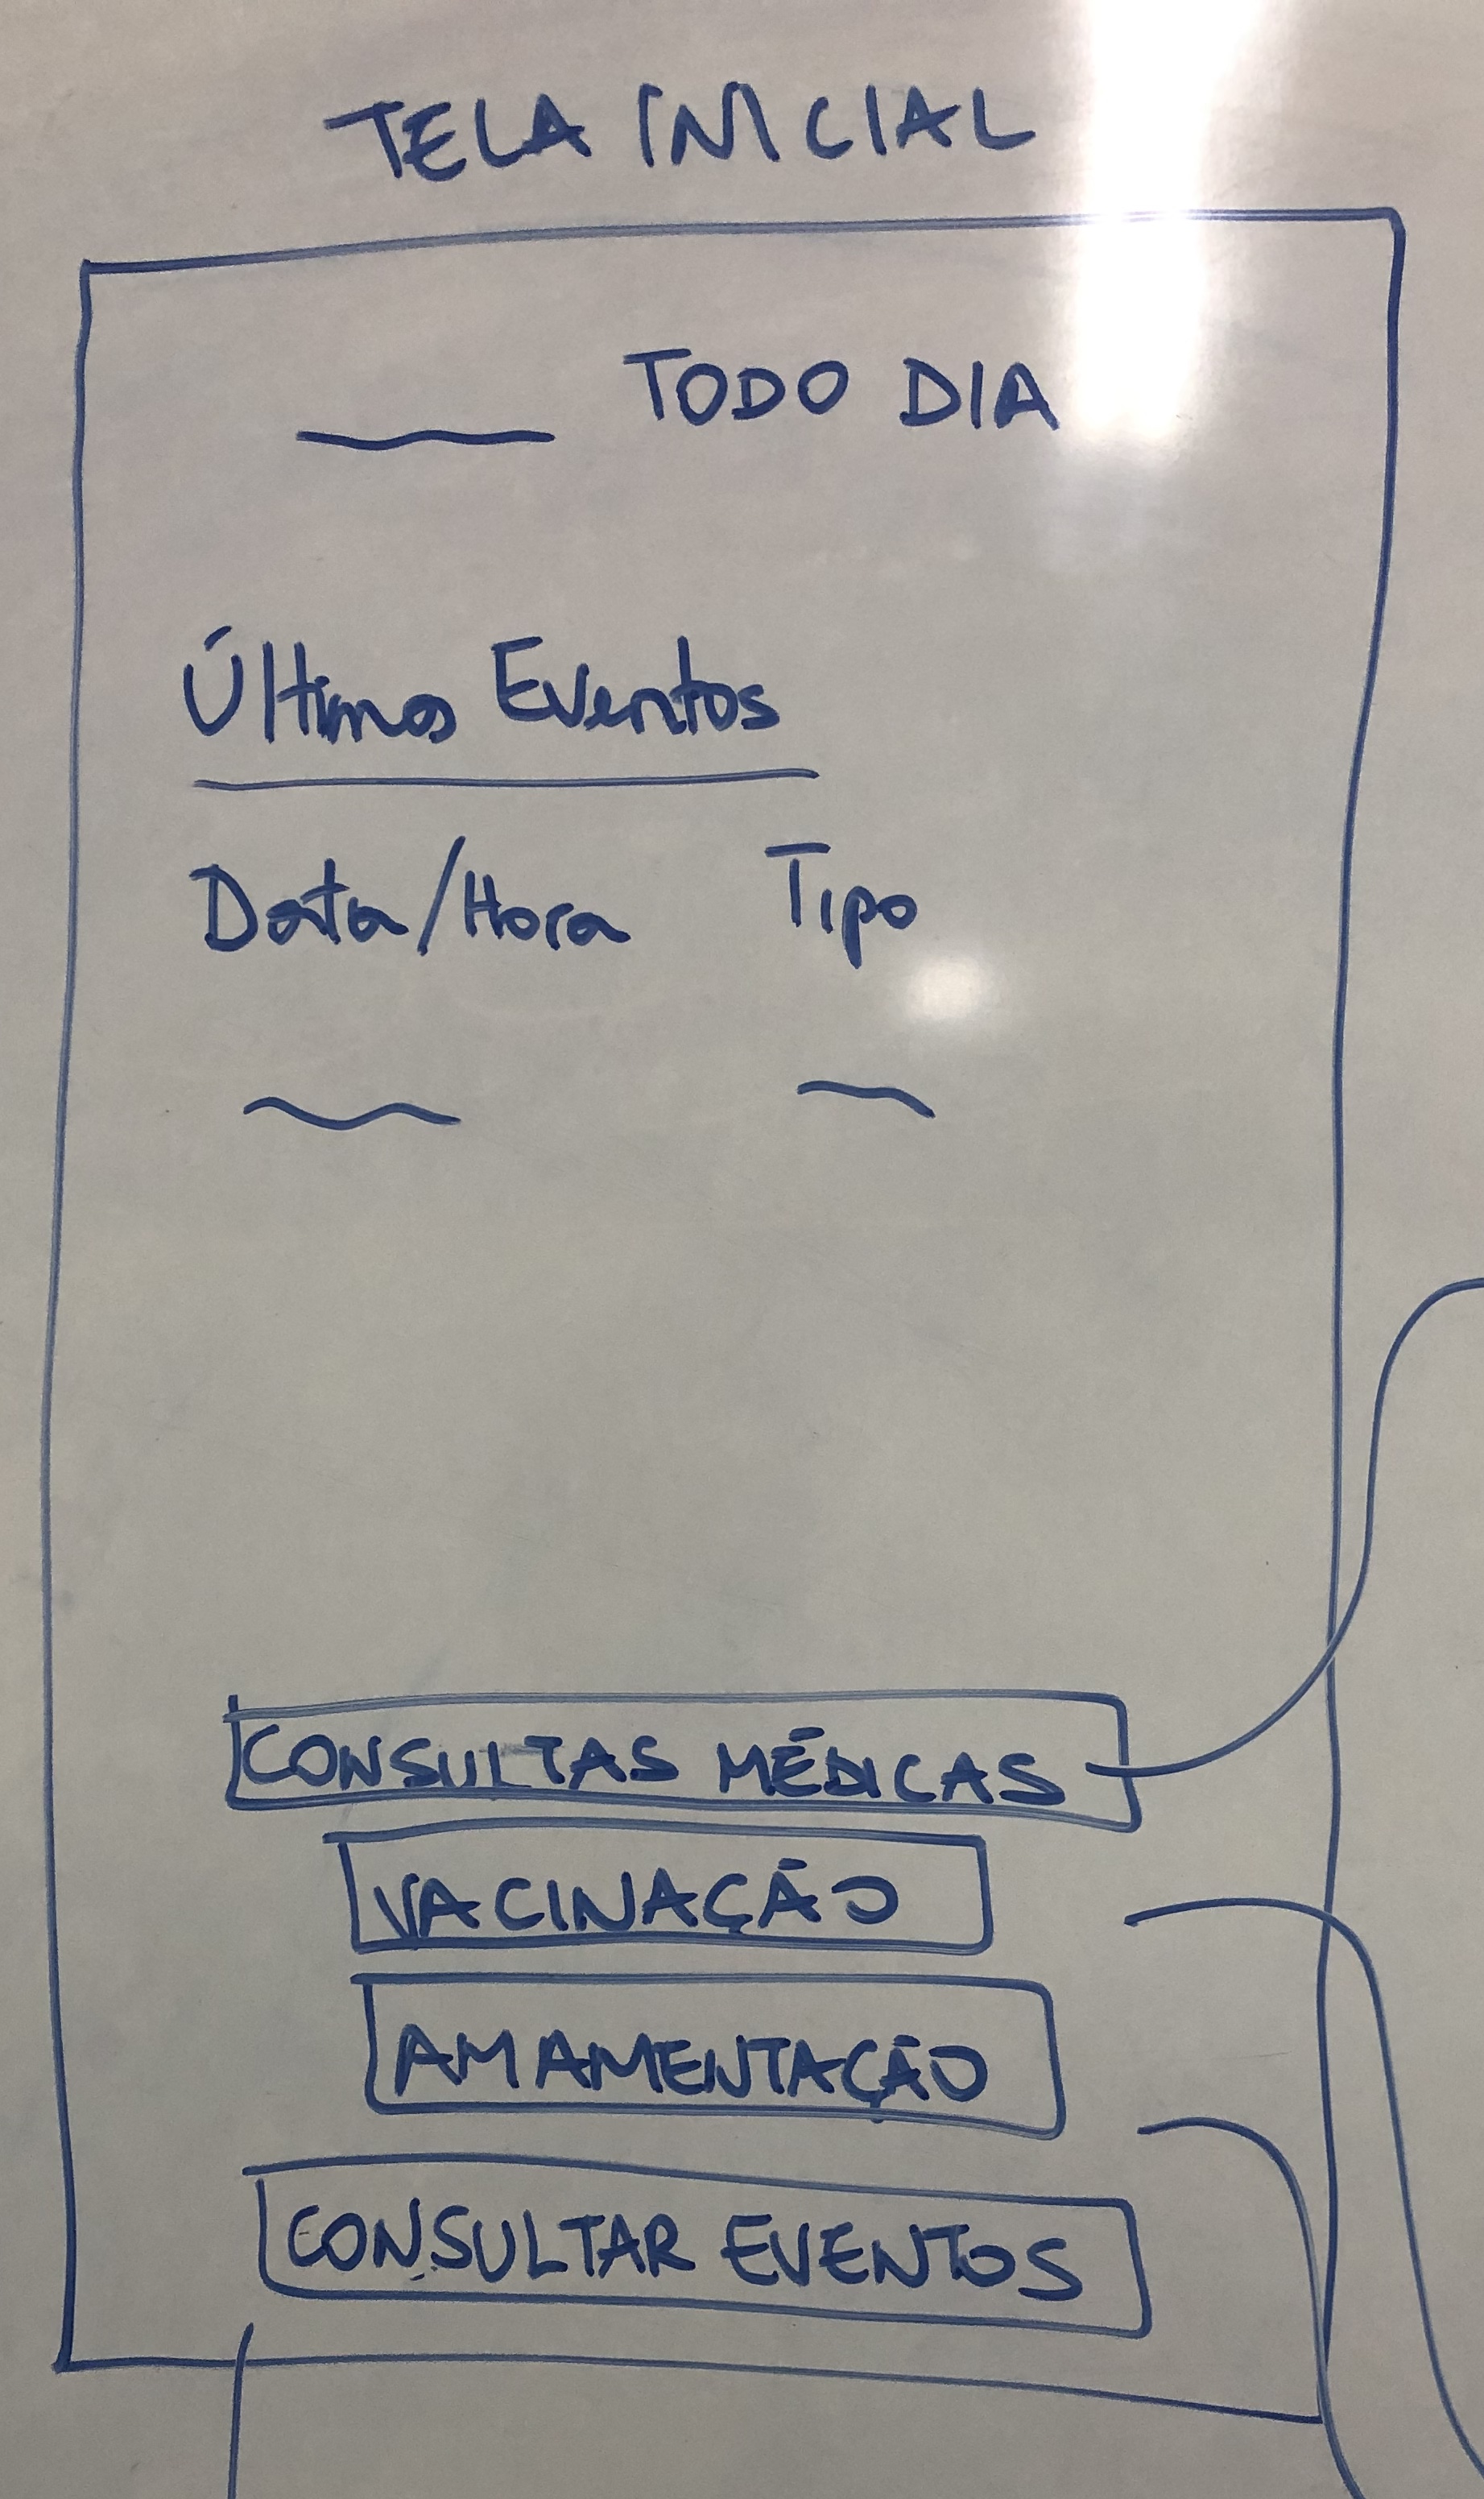 TELA INICIAL
TODO DIA
Últimos Eventos
Data/Hora Tipo
CONSULTAS MÉDICAS
VACINAÇÃO
AMAMENTAÇÃO
CONSULTAR EVENTOS